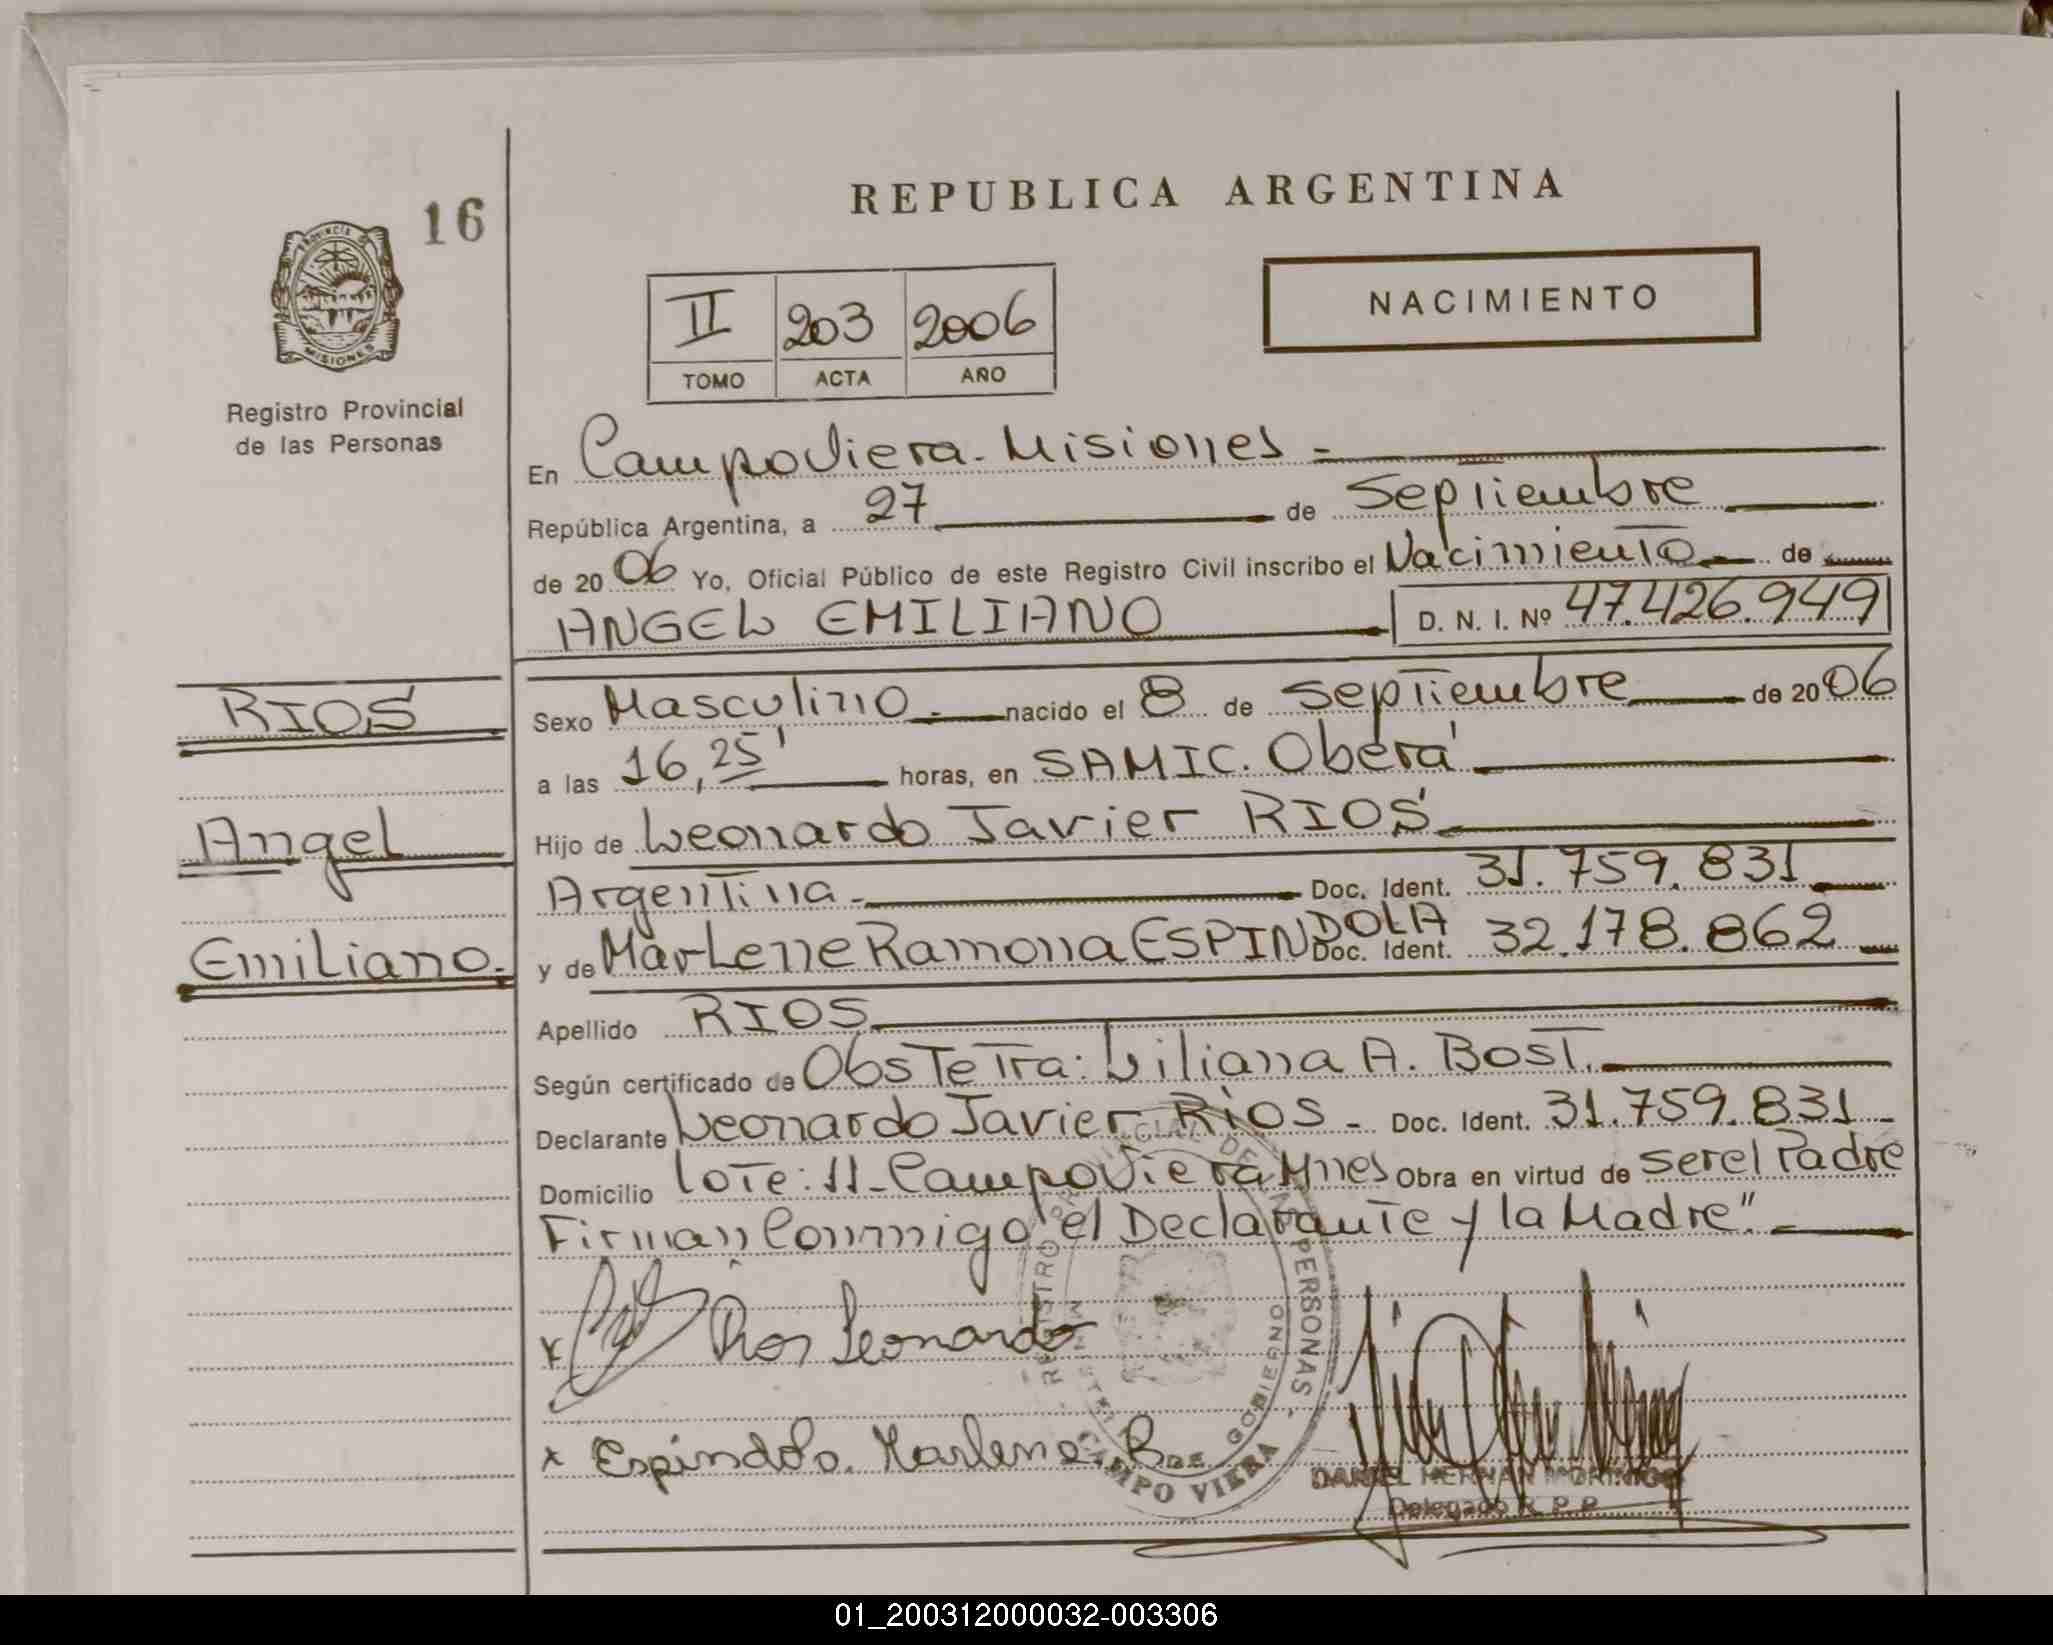 16
REPUBLICA ARGENTINA
PROVINCIA DE
MISIONES
Registro Provincial
de las Personas
NACIMIENTO
II 203 2006
TOMO ACTA AÑO
En Campo Viera - Misiones -
República Argentina, a 27 de Septiembre
de 2006 Yo, Oficial Público de este Registro Civil inscribo el Nacimiento de
ANGEL EMILIANO D. N. I. Nº 47.426.949
RIOS
Angel
Emiliano.
Sexo Masculino. nacido el 8 de Septiembre de 2006
a las 16,25' horas, en SAMIC. Oberá
Hijo de Leonardo Javier RIOS
Argentina - Doc. Ident. 31.759.831
y de Marlene Ramona ESPINDOLA Doc. Ident. 32.178.862
Apellido RIOS
Según certificado de Obstetra: Liliana A. Bost.
Declarante Leonardo Javier Rios - Doc. Ident. 31.759.831 -
Domicilio Lote: 11 - Campo Viera Mnes Obra en virtud de ser el Padre
Firman Conmigo el Declarante y la Madre". -
x Rios Leonardo
x Espindola. Marlene. R.
REGISTRO PROVINCIAL DE LAS PERSONAS -
DE GOBIERNO
CAMPO VIERA
DANIEL HERNAN MORINIGO
Delegado R. P. P.
01_200312000032-003306